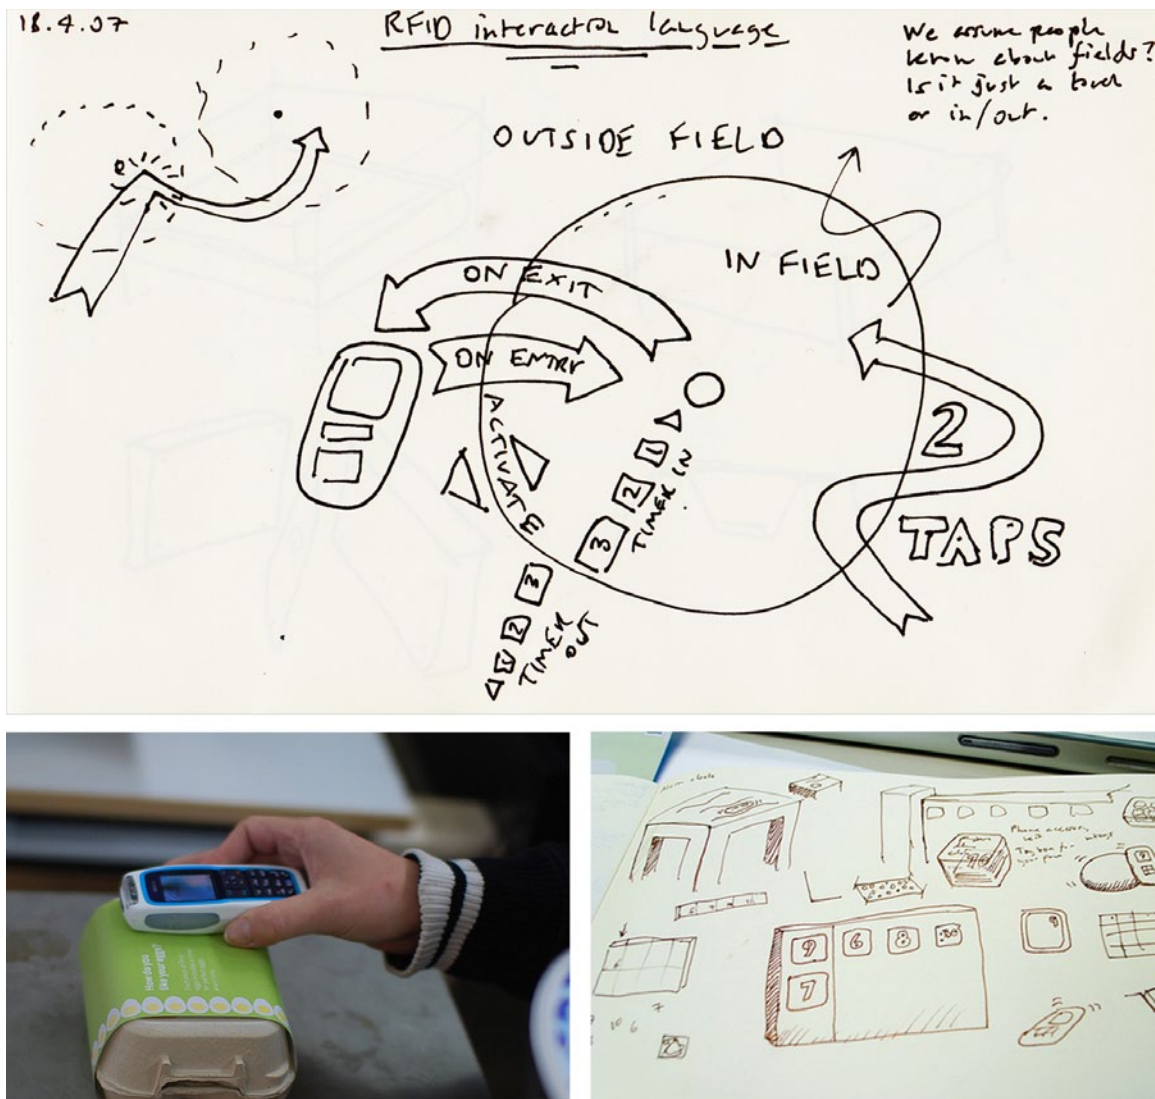 18.4.07
RFID interaction language
We assume people
know about fields?
Is it just a touch
or in/out.
OUTSIDE FIELD
IN FIELD
ON EXIT
ON ENTRY
ACTIVATE
1
2
3
TIMER IN
3
2
1
TIMER
OUT
2
TAPS
How do you
like your eggs?
Phone access
9
6
8
7